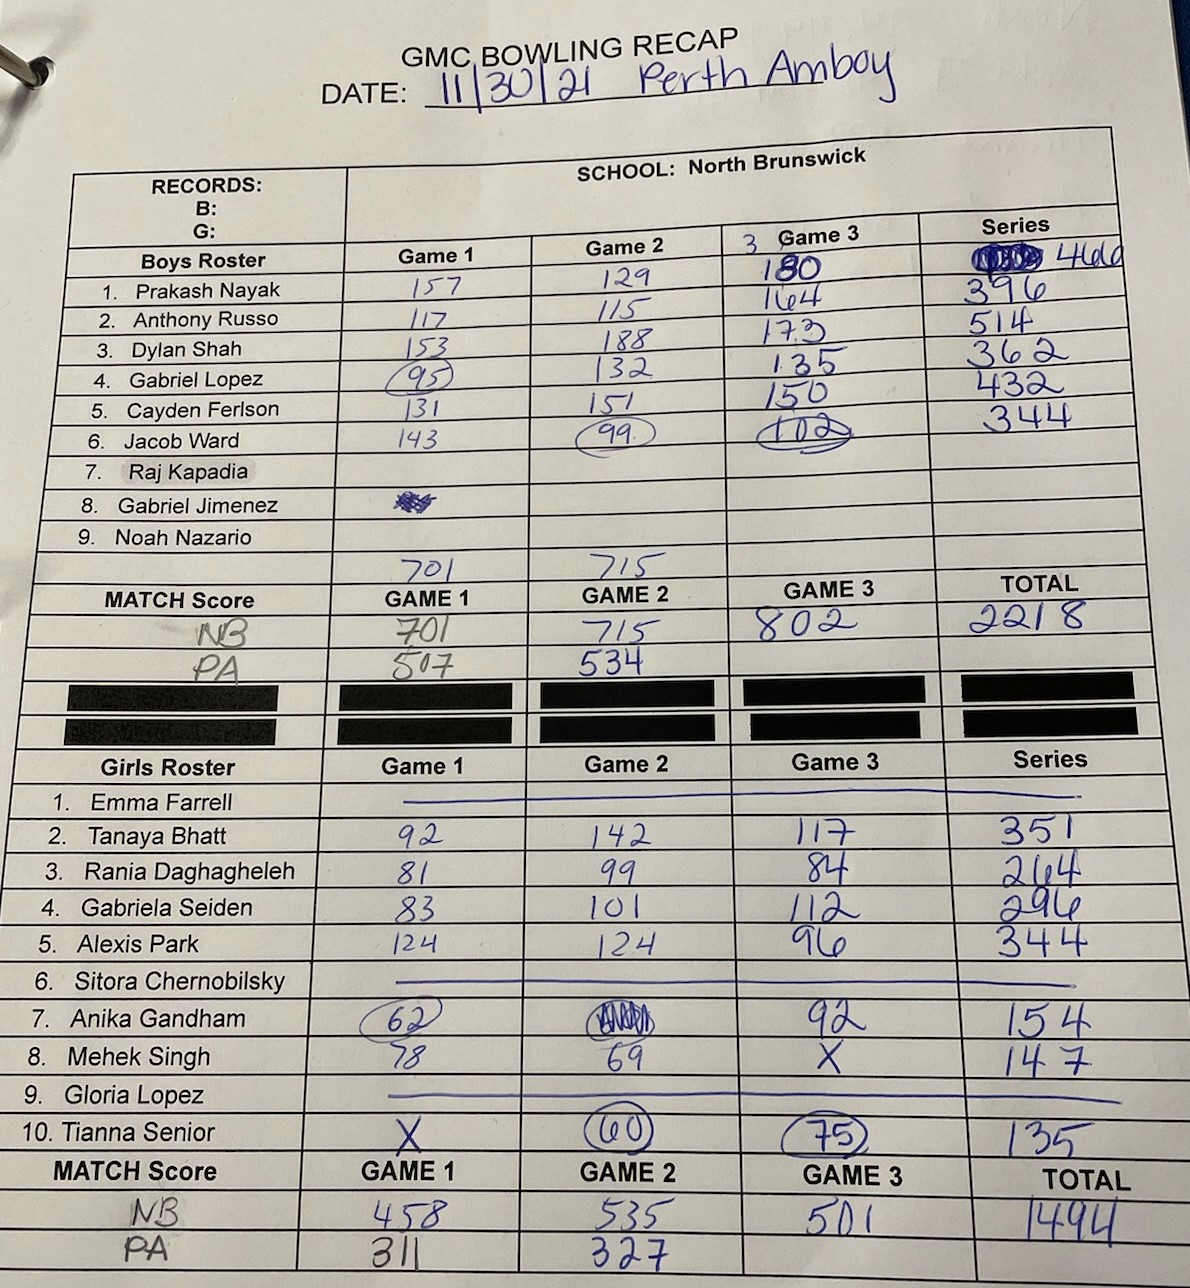 GMC BOWLING RECAP
DATE: 11/30/21 Perth Amboy
RECORDS: SCHOOL: North Brunswick
B:
G:
Boys Roster Game 1 Game 2 3 Game 3 Series
1. Prakash Nayak 157 129 180 466
2. Anthony Russo 117 115 164 396
3. Dylan Shah 153 188 173 514
4. Gabriel Lopez 95 132 135 362
5. Cayden Ferlson 131 151 150 432
6. Jacob Ward 143 99 102 344
7. Raj Kapadia
8. Gabriel Jimenez
9. Noah Nazario
701 715
MATCH Score GAME 1 GAME 2 GAME 3 TOTAL
NB 701 715 802 2218
PA 507 534
Girls Roster Game 1 Game 2 Game 3 Series
1. Emma Farrell
2. Tanaya Bhatt 92 142 117 351
3. Rania Daghagheleh 81 99 84 264
4. Gabriela Seiden 83 101 112 296
5. Alexis Park 124 124 96 344
6. Sitora Chernobilsky
7. Anika Gandham 62 92 154
8. Mehek Singh 78 69 X 147
9. Gloria Lopez
10. Tianna Senior X 60 75 135
MATCH Score GAME 1 GAME 2 GAME 3 TOTAL
NB 458 535 501 1494
PA 311 327